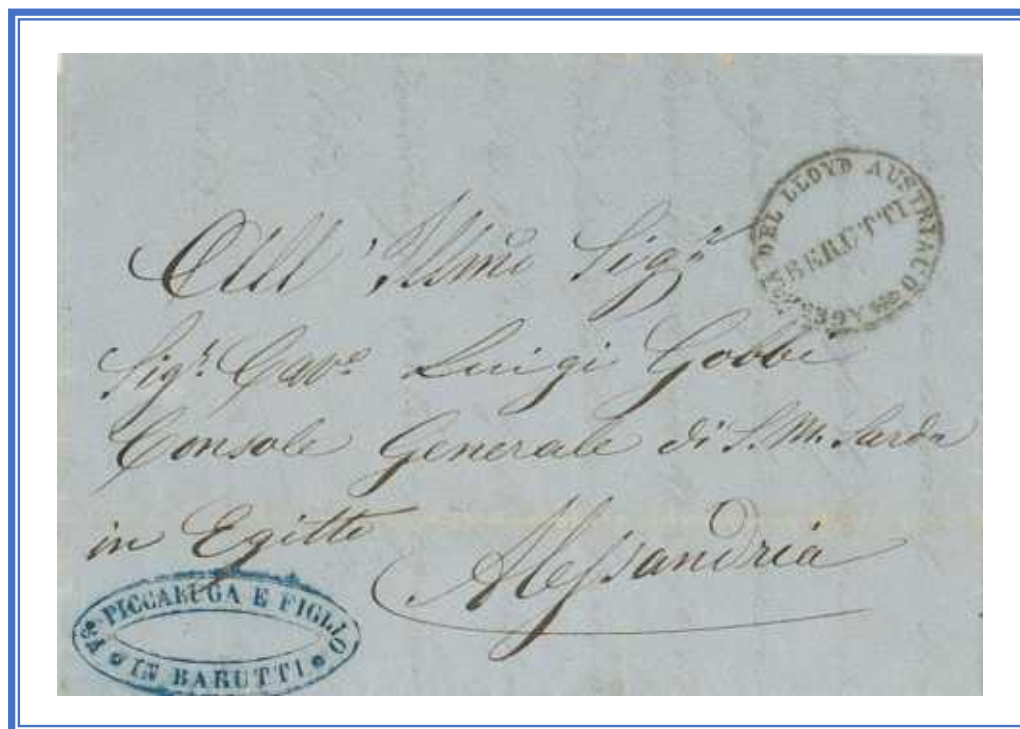 AGENZIA DEL LLOYD AUSTRIACO
BERUTTI
All' Illmo Sigr
Sigr Cave Luigi Gobbi
Console Generale di S. M. Sarda
in Egitto
Alessandria
PICCALUGA E FIGLIO
IN BARUTTI